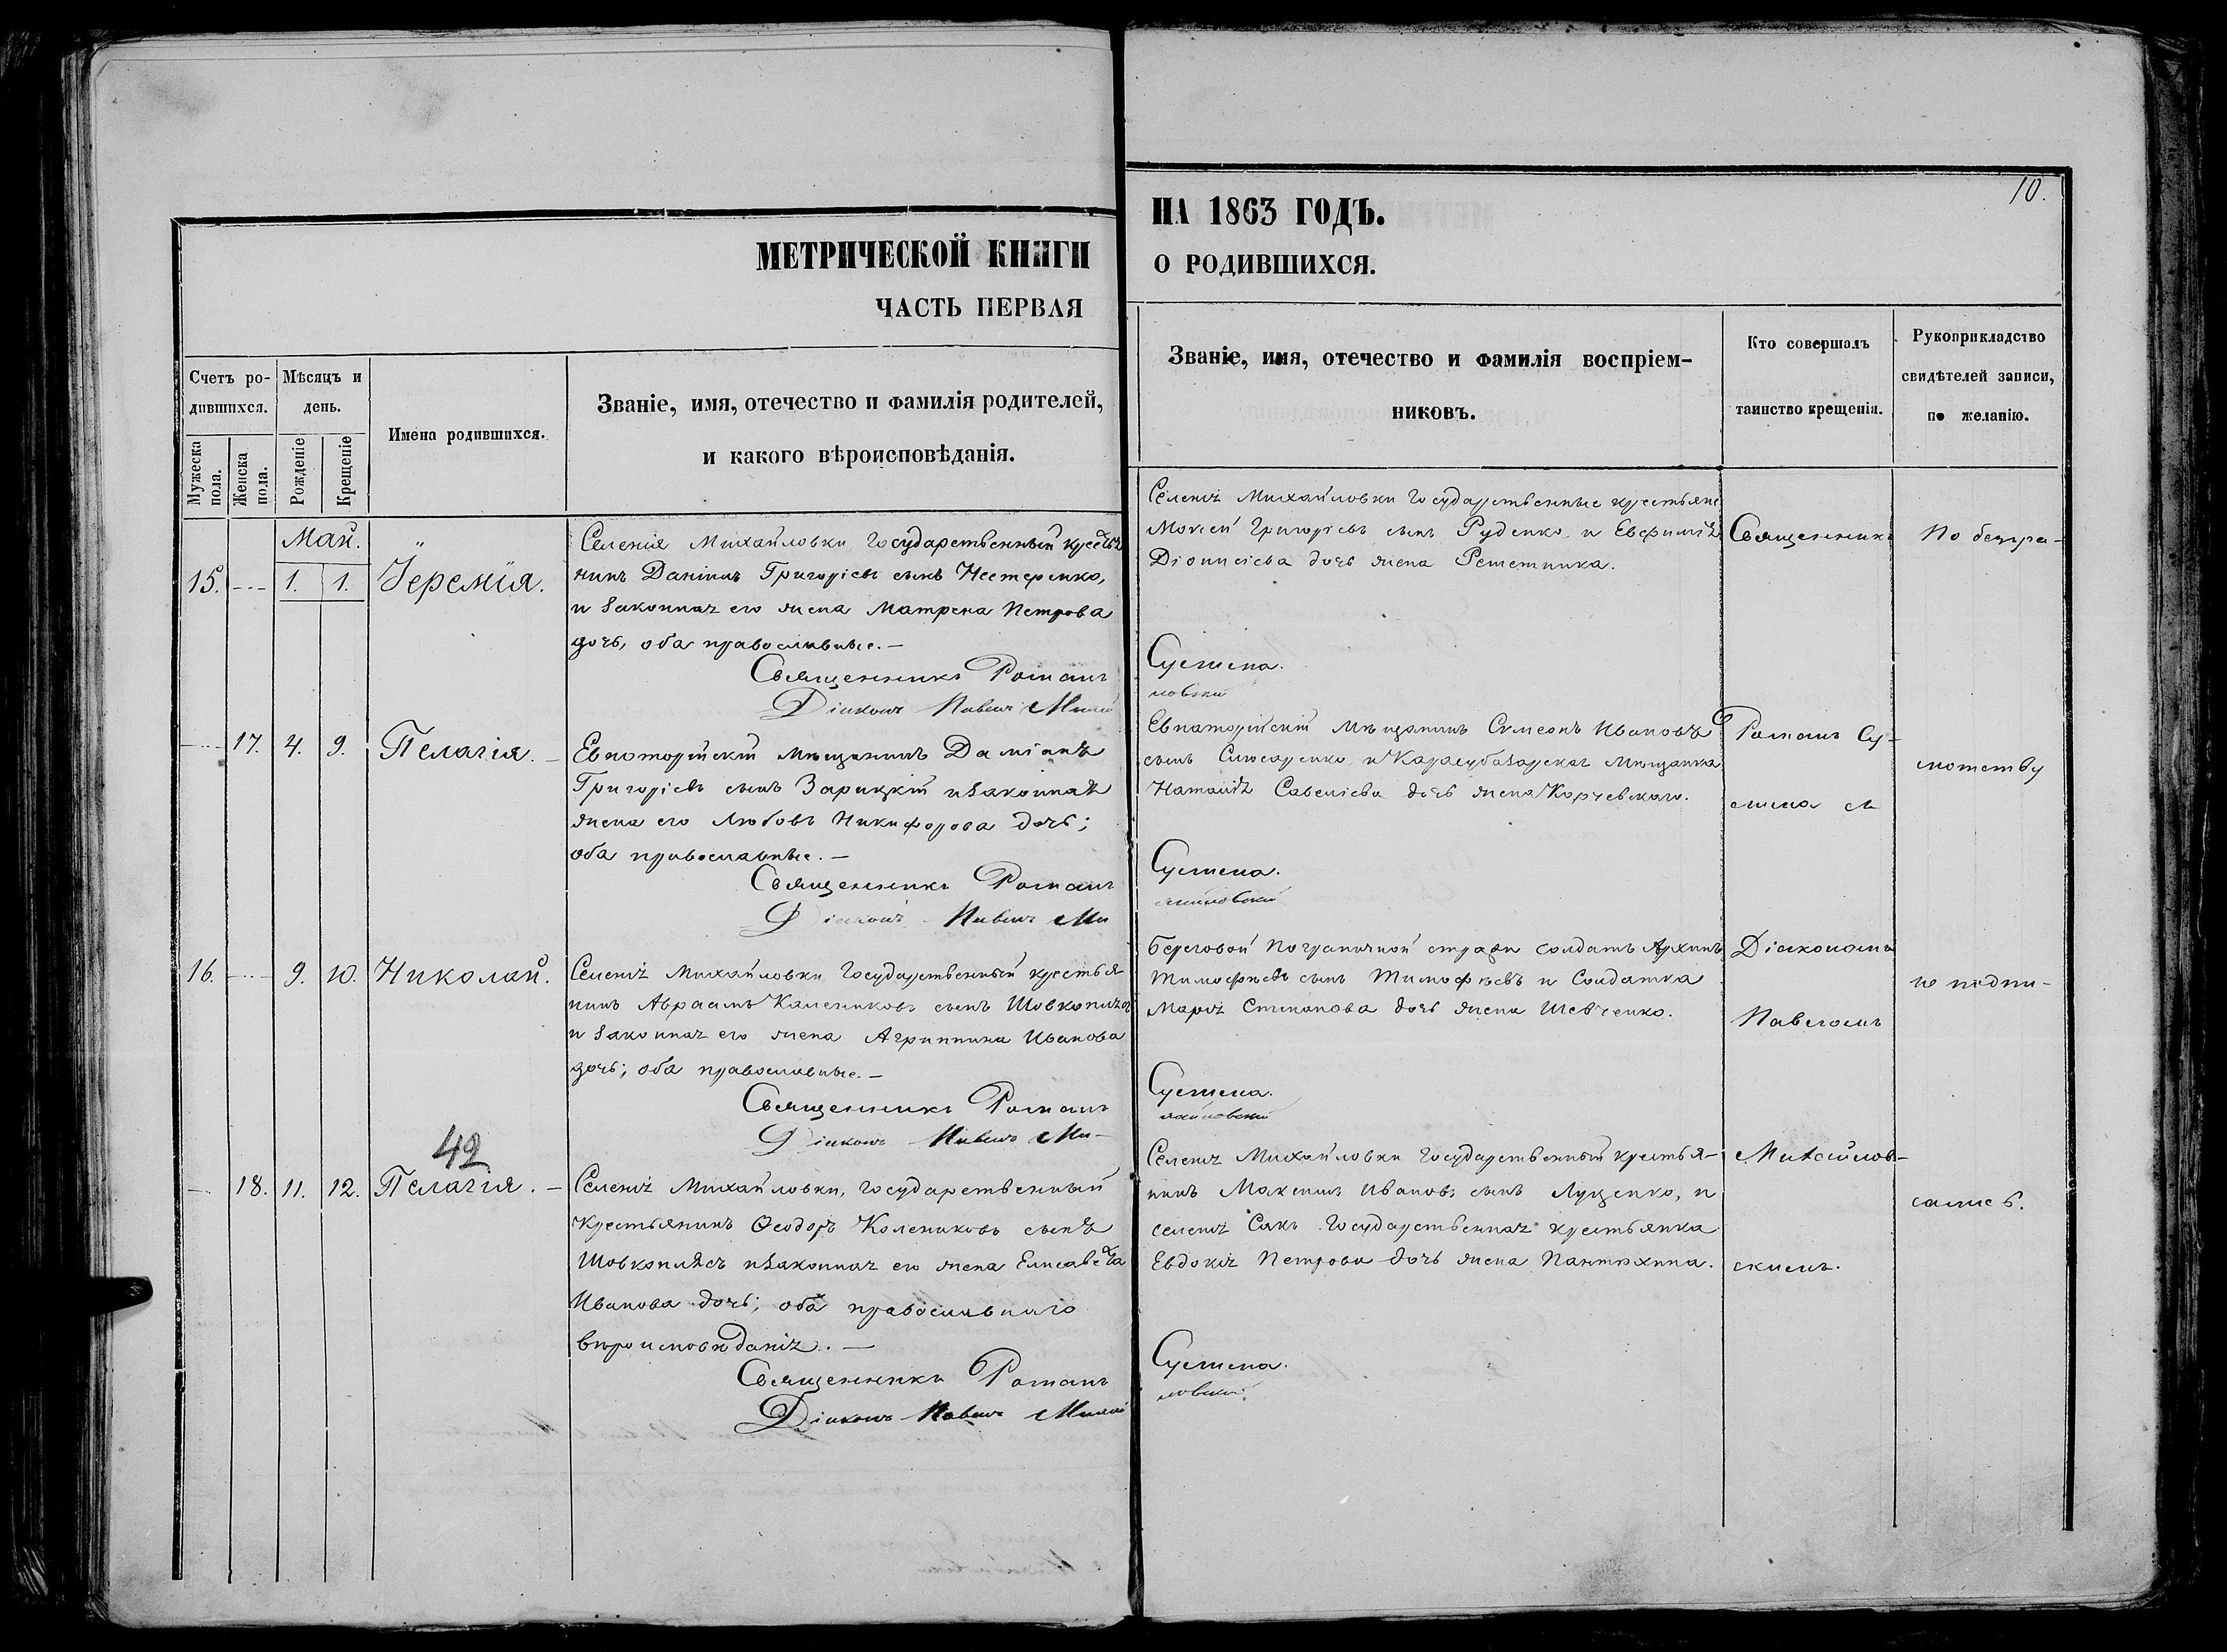 МЕТРИЧЕСКОЙ КНИГИ
ЧАСТЬ ПЕРВАЯ
Счетъ ро-
дившихся.
Мужеска
пола.
Женска
пола.
Мѣсяцъ и
день.
Рожденіе
Крещеніе
Имена родившихся.
Званіе, имя, отечество и фамилія родителей,
и какого вѣроисповѣданія.
Май.
15. 1. 1. Іеремія.
Селенія Михайловки Государственный крестья
нинъ Даніилъ Григоріевъ сынъ Нестеренко,
и законная его жена Матрена Петрова
дочь, оба православные.—
Священникъ Романъ
Діаконъ Павелъ Михай
17. 4. 9. Пелагія.—
Евпаторійскій мѣщанинъ Даміанъ
Григорьевъ сынъ Зарицкій и законная
жена его Любовь Никифорова дочь;
оба православные.—
Священникъ Романъ
Діаконъ Павелъ Ми
16. 9. 10. Николай.
Селенія Михайловки Государственный крестья
нинъ Авраамъ Калениковъ сынъ Шовкоплясъ
и законная его жена Агриппина Иванова
дочь; оба православные.—
Священникъ Романъ
Діаконъ Павелъ Ми-
42
18. 11. 12. Пелагія.—
Селенія Михайловки, Государственный
крестьянинъ Ѳеодоръ Колениковъ сынъ
Шовкоплясъ и законная его жена Елисавета
Иванова дочь; оба православнаго
вѣроисповѣданія.—
Священникъ Романъ
Діаконъ Павелъ Михай
10.
НА 1863 ГОДЪ.
О РОДИВШИХСЯ.
Званіе, имя, отечество и фамилія воспріем-
никовъ.
Кто совершалъ
таинство крещенія.
Рукоприкладство
свидѣтелей записи,
по желанію.
Селенія Михайловки Государственные крестьяне
Моисей Григорьевъ сынъ Руденко и Евфимія
Діонисіева дочь жена Решетника.
Сусмена.
ловскій
Евпаторійскій мѣщанинъ Симеонъ Ивановъ
сынъ Слюсаренко и Карасубазарская мѣщанка
Наталія Савеліева дочь жена Корчевскаго.
Сусмена.
хайловскій
Береговой пограничной стражи солдатъ Архипъ
Тимофѣевъ сынъ Тимофѣевъ и Солдатка
Марія Степанова дочь жена Шевченко.
Сусмена.
хайловскій
Селенія Михайловки Государственный крестья-
нинъ Максимъ Ивановъ сынъ Луценко, и
селенія Сакъ Государственная крестьянка
Евдокія Петрова дочь жена Пантюхина.
Сусмена.
ловскій.
Священникъ
Романъ Су-
смена съ
Діакономъ
Павломъ
Михайлов-
скимъ.
По безгра-
мотству
не подпи-
сались.